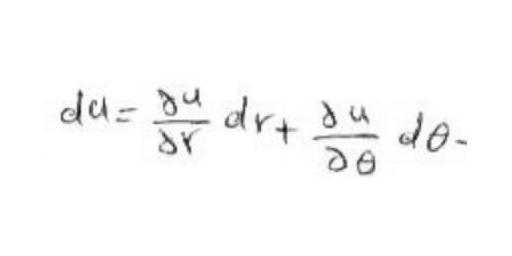 du = ∂u/∂r dr + ∂u/∂θ dθ -